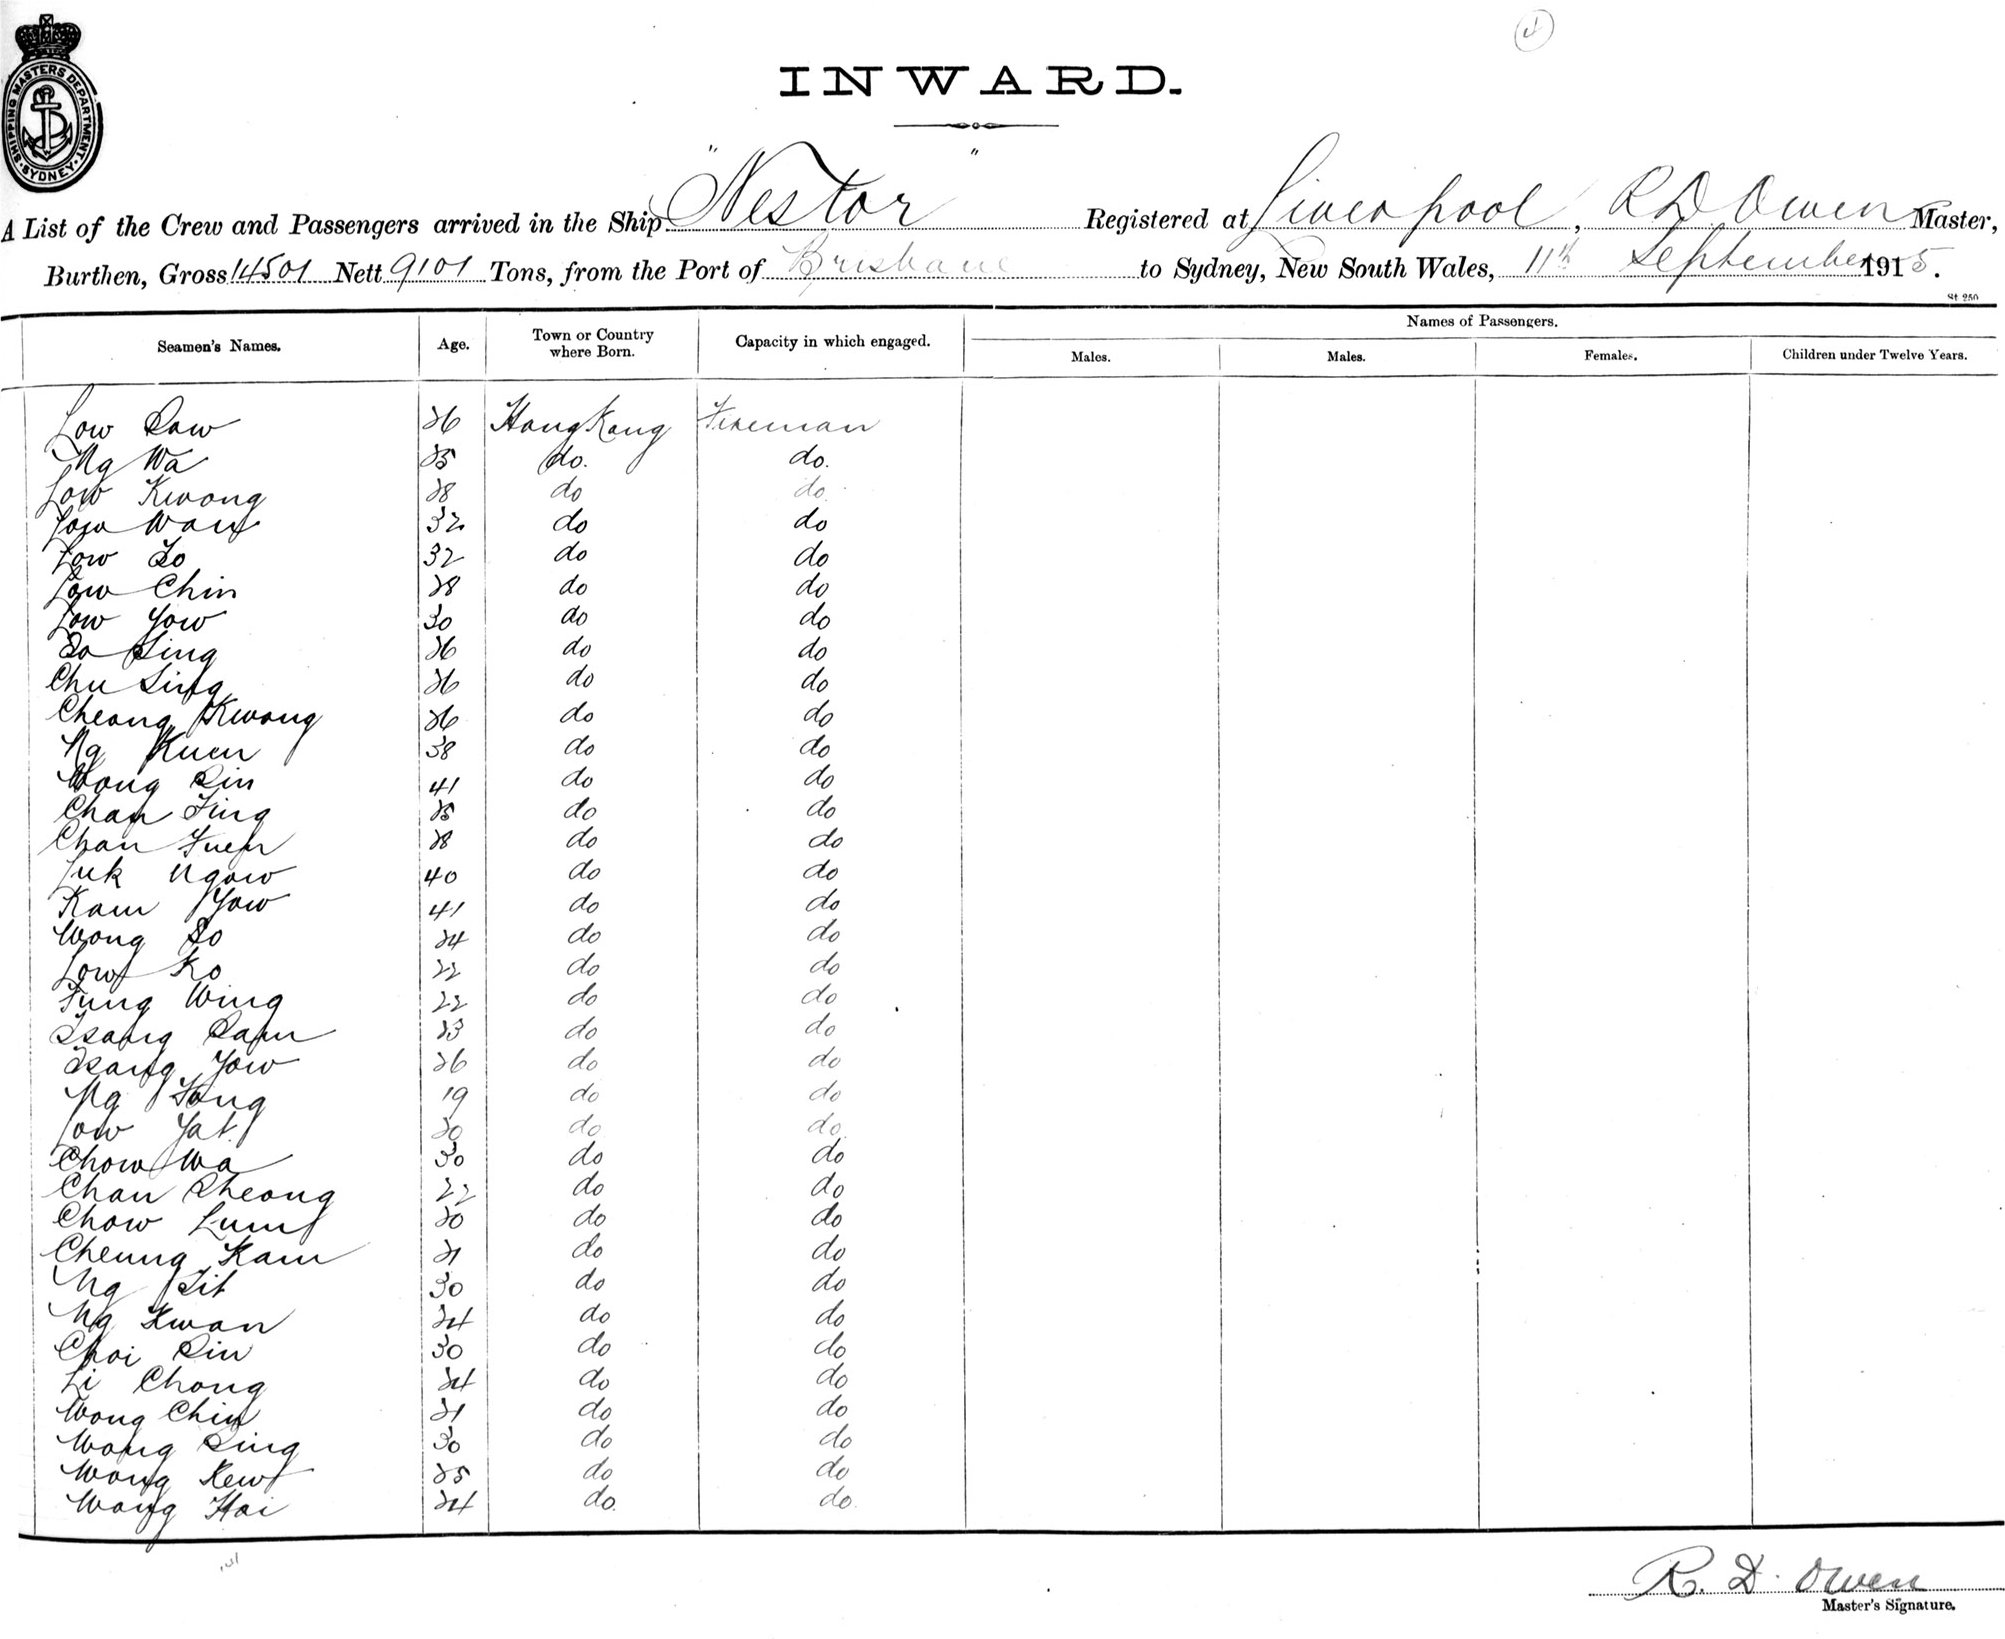 4
INWARD.
SHIPPING MASTERS DEPARTMENT. SYDNEY
A List of the Crew and Passengers arrived in the Ship "Nestor" Registered at Liverpool, R D Owen Master,
Burthen, Gross 14501 Nett 9101 Tons, from the Port of Brisbane to Sydney, New South Wales, 11th September 1915.
St 250
Names of Passengers.
Seamen's Names. Age. Town or Country where Born. Capacity in which engaged. Males. Males. Females. Children under Twelve Years.
Low Saw 26 Hong Kong Fireman
Ng Wa 25 do. do.
Low Kwong 28 do do
Low Wan 32 do do
Low So 32 do do
Low Chin 28 do do
Low Yow 30 do do
So Sing 26 do do
Chu Sing 26 do do
Cheong Kwong 26 do do
Ng Kuen 38 do do
Wong Sin 41 do do
Chan Fing 25 do do
Chan Fuen 28 do do
Luk Ngow 40 do do
Kam Yow 41 do do
Wong So 24 do do
Low Ko 22 do do
Fung Wing 22 do do
Tsang Sam 23 do do
Tsang Yow 26 do do
Ng Fong 19 do do
Low Yat 20 do do
Chow Wa 30 do do
Chan Cheong 22 do do
Chow Lum 20 do do
Cheung Kam 21 do do
Ng Sit 30 do do
Ng Kwan 24 do do
Choi Sin 30 do do
Li Chong 24 do do
Wong Chin 21 do do
Wong Sing 30 do do
Wong Kew 25 do do
Wong Hoi 24 do. do.
R. D. Owen
Master's Signature.